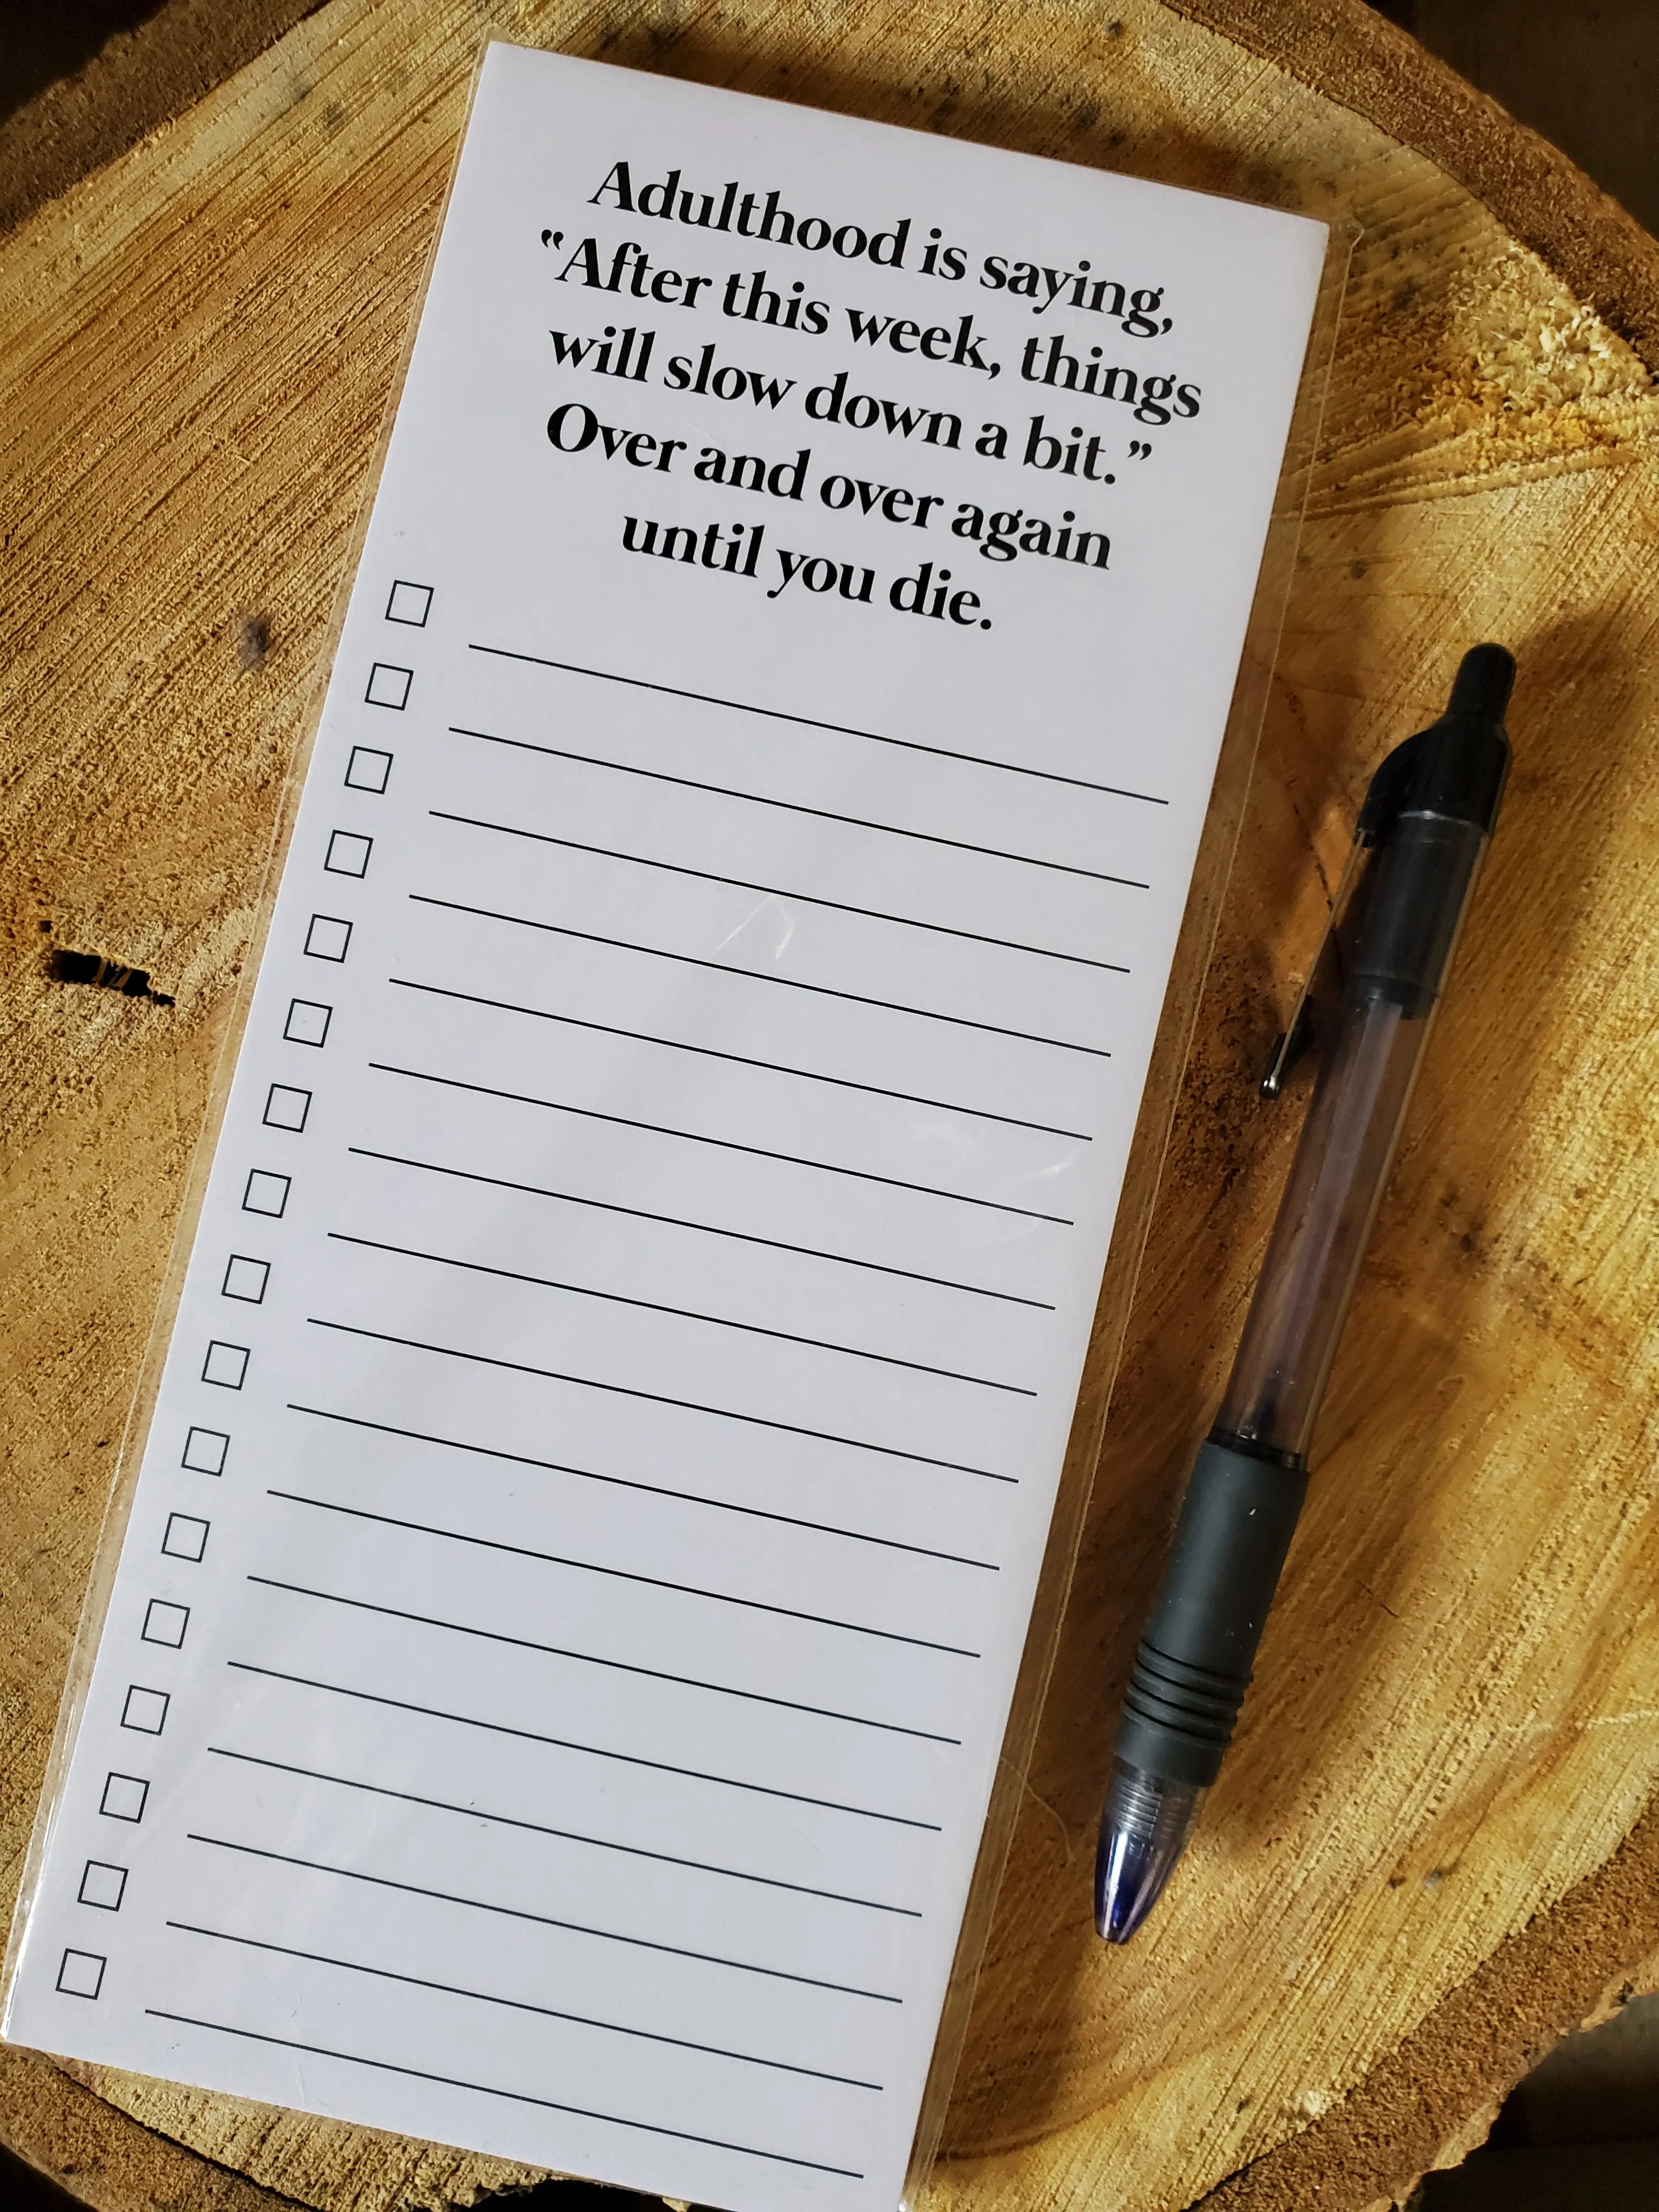 Adulthood is saying,
“After this week, things
will slow down a bit.”
Over and over again
until you die.